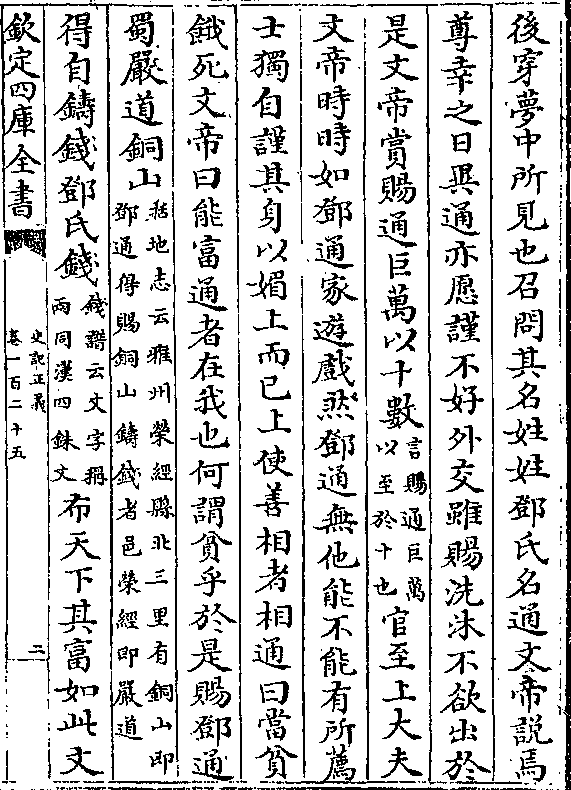 後穿夢中所見也召問其名姓姓鄧氏名通文帝說焉
尊幸之日異通亦愿謹不好外交雖賜洗沐不欲出於
是文帝賞賜通巨萬以十數言賜通巨萬以至於十也官至上大夫
文帝時時如鄧通家遊戲然鄧通無他能不能有所薦
士獨自謹其身以媚上而已上使善相者相通曰當貧
餓死文帝曰能富通者在我也何謂貧乎於是賜鄧通
蜀嚴道銅山括地志云雅州榮經縣北三里有銅山即鄧通得賜銅山鑄錢者邑榮經即嚴道
得自鑄錢鄧氏錢錢譜云文字稱兩同漢四銖文布天下其富如此文
欽定四庫全書
史記正義
卷一百二十五
二